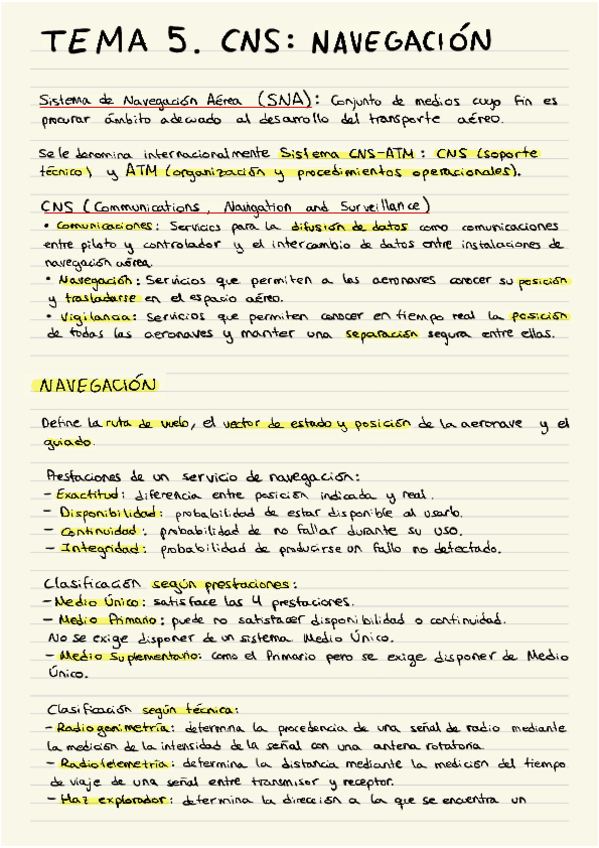 TEMA 5. CNS: NAVEGACIÓN
Sistema de Navegación Aérea (SNA): Conjunto de medios cuyo fin es
procurar ámbito adecuado al desarrollo del transporte aéreo.
Se le denomina internacionalmente Sistema CNS-ATM: CNS (soporte
técnico) y ATM (organización y procedimientos operacionales).
CNS (Communications, Navigation and Surveillance)
• Comunicaciones: Servicios para la difusión de datos como comunicaciones
entre piloto y controlador y el intercambio de datos entre instalaciones de
navegación aérea.
• Navegación: Servicios que permiten a las aeronaves conocer su posición
y trasladarse en el espacio aéreo.
• Vigilancia: Servicios que permiten conocer en tiempo real la posición
de todas las aeronaves y manter una separación segura entre ellas.
NAVEGACIÓN
Define la ruta de vuelo, el vector de estado y posición de la aeronave y el
guiado.
Prestaciones de un servicio de navegación:
- Exactitud: diferencia entre posición indicada y real.
- Disponibilidad: probabilidad de estar disponible al usarlo.
- Continuidad: probabilidad de no fallar durante su uso.
- Integridad: probabilidad de producirse un fallo no detectado.
Clasificación según prestaciones:
- Medio Único: satisface las 4 prestaciones.
- Medio Primario: puede no satisfacer disponibilidad o continuidad.
No se exige disponer de un sistema Medio Único.
- Medio Suplementario: como el Primario pero se exige disponer de Medio
Único.
Clasificación según técnica:
- Radiogoniometría: determina la procedencia de una señal de radio mediante
la medición de la intensidad de la señal con una antena rotatoria.
- Radiotelemetría: determina la distancia mediante la medición del tiempo
de viaje de una señal entre transmisor y receptor.
- Haz explorador: determina la dirección a la que se encuentra un